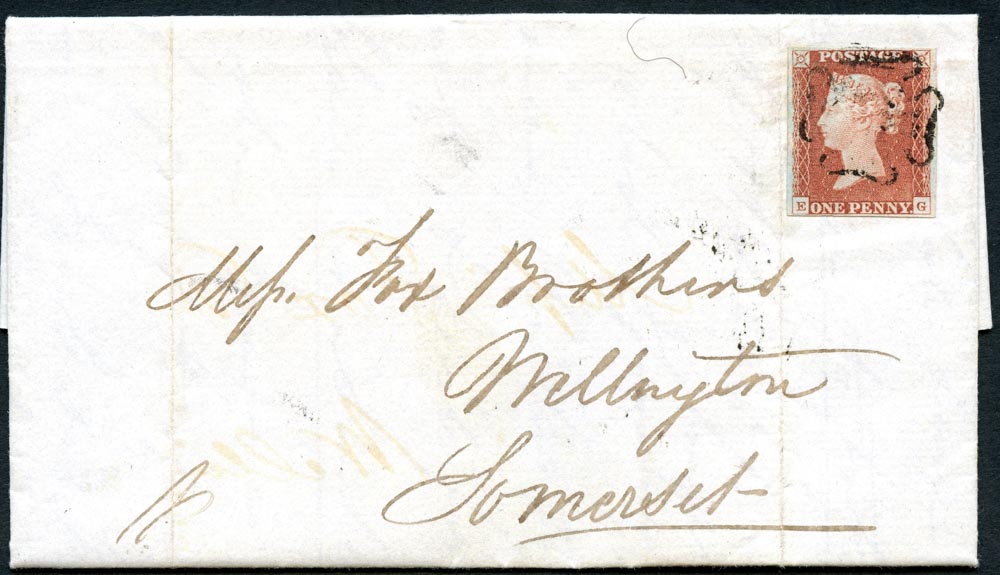 POSTAGE
E ONE PENNY. G
Mess. Fox Brothers
Wellington
Somerset